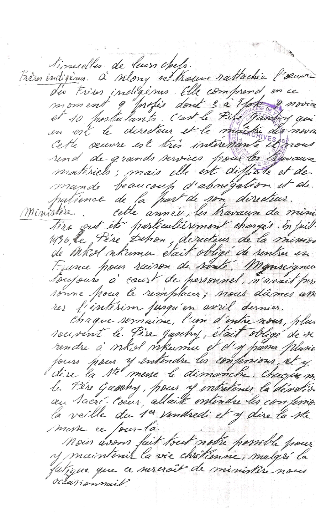 annuelles de leurs chefs.
Frères indigènes. à Mlony est trouve rattachée l'œuvre
des Frères indigènes. Elle comprend en ce
moment 9 profès dont 3 à novices
et 10 postulants. C'est le Père Gautry qui
en est le directeur et le maître des novices
Cette œuvre est très intéressante et nous
rend de grands services pour les travaux
matériels; mais elle est difficile et de-
mande beaucoup d'abnégation et de
patience de la part de son directeur.
Ministère. Cette année, les travaux du minis-
tère ont été particulièrement chargés. En juillet
le Père directeur de la mission
de Nkol Nkumu était obligé de rentrer en
France pour raison de santé. Monseigneur
toujours à court de personnel, n'avait per-
sonne pour le remplacer; nous dûmes assu-
rer l'intérim jusqu'en avril dernier.
Chaque semaine, l'un d'entre nous, plus
souvent le Père Gautry, était obligé de se
rendre à Nkol Nkumu et d'y passer plusieurs
jours pour y entendre les confessions, et y
dire la Ste messe le dimanche. Chaque mois
le Père Gautry, pour y entretenir la dévotion
au Sacré-Cœur, allait entendre les confessions
la veille du 1er vendredi et y dire la Ste
messe ce jour-là.
Nous avons fait tout notre possible pour
y maintenir la vie chrétienne, malgré la
fatigue que ce surcroît de ministère nous
occasionnait